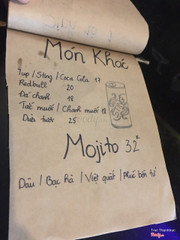 Món Khác
7up / Sting / Coca Cola 17
Redbull 20
Đá chanh 18
Tắc muối / Chanh muối 18
Dừa tươi 25
Mojito 32
Dâu / Bạc Hà / Việt quất / Phúc bồn tử